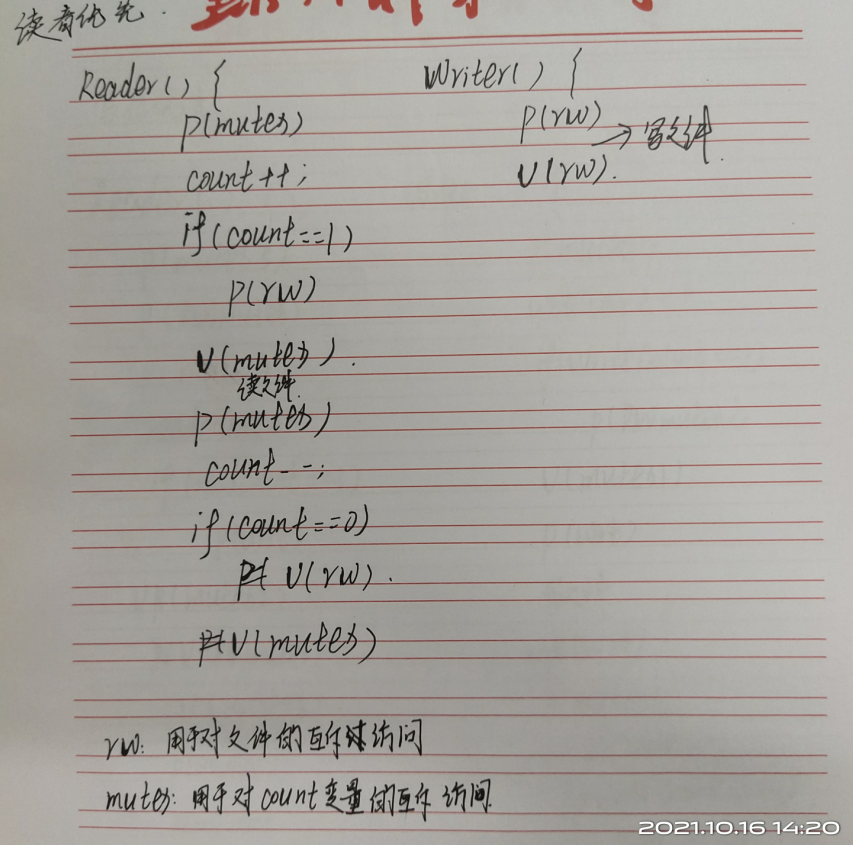 读者优先.
Reader() {
P(mutex)
count++;
if(count==1)
P(rw)
V(mutex).
读文件
P(mutex)
count--;
if(count==0)
V(rw).
V(mutex)
Writer() {
P(rw)
→写文件.
V(rw).
rw: 用于对文件的互斥访问
mutex: 用于对count变量的互斥访问.
2021.10.16 14:20